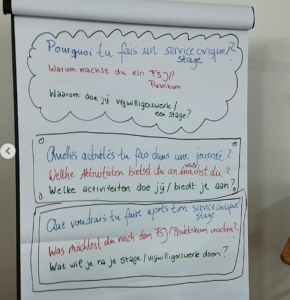 Pourquoi tu fais un service civique/?
stage
Warum machst du ein FSJ/?
Praktikum
Waarom doe jij vrijwilligerswerk/
een stage?
Quelles activités tu fais dans une journée?
Welche Aktivitäten bietest du an/machst du?
Welke activiteiten doe jij/biedt je aan?
Que voudrais tu faire après ton service civique
stage
Was möchtest du nach dem FSJ/Praktikum machen?
Wat wil je na je stage/vrijwilligerswerk doen?